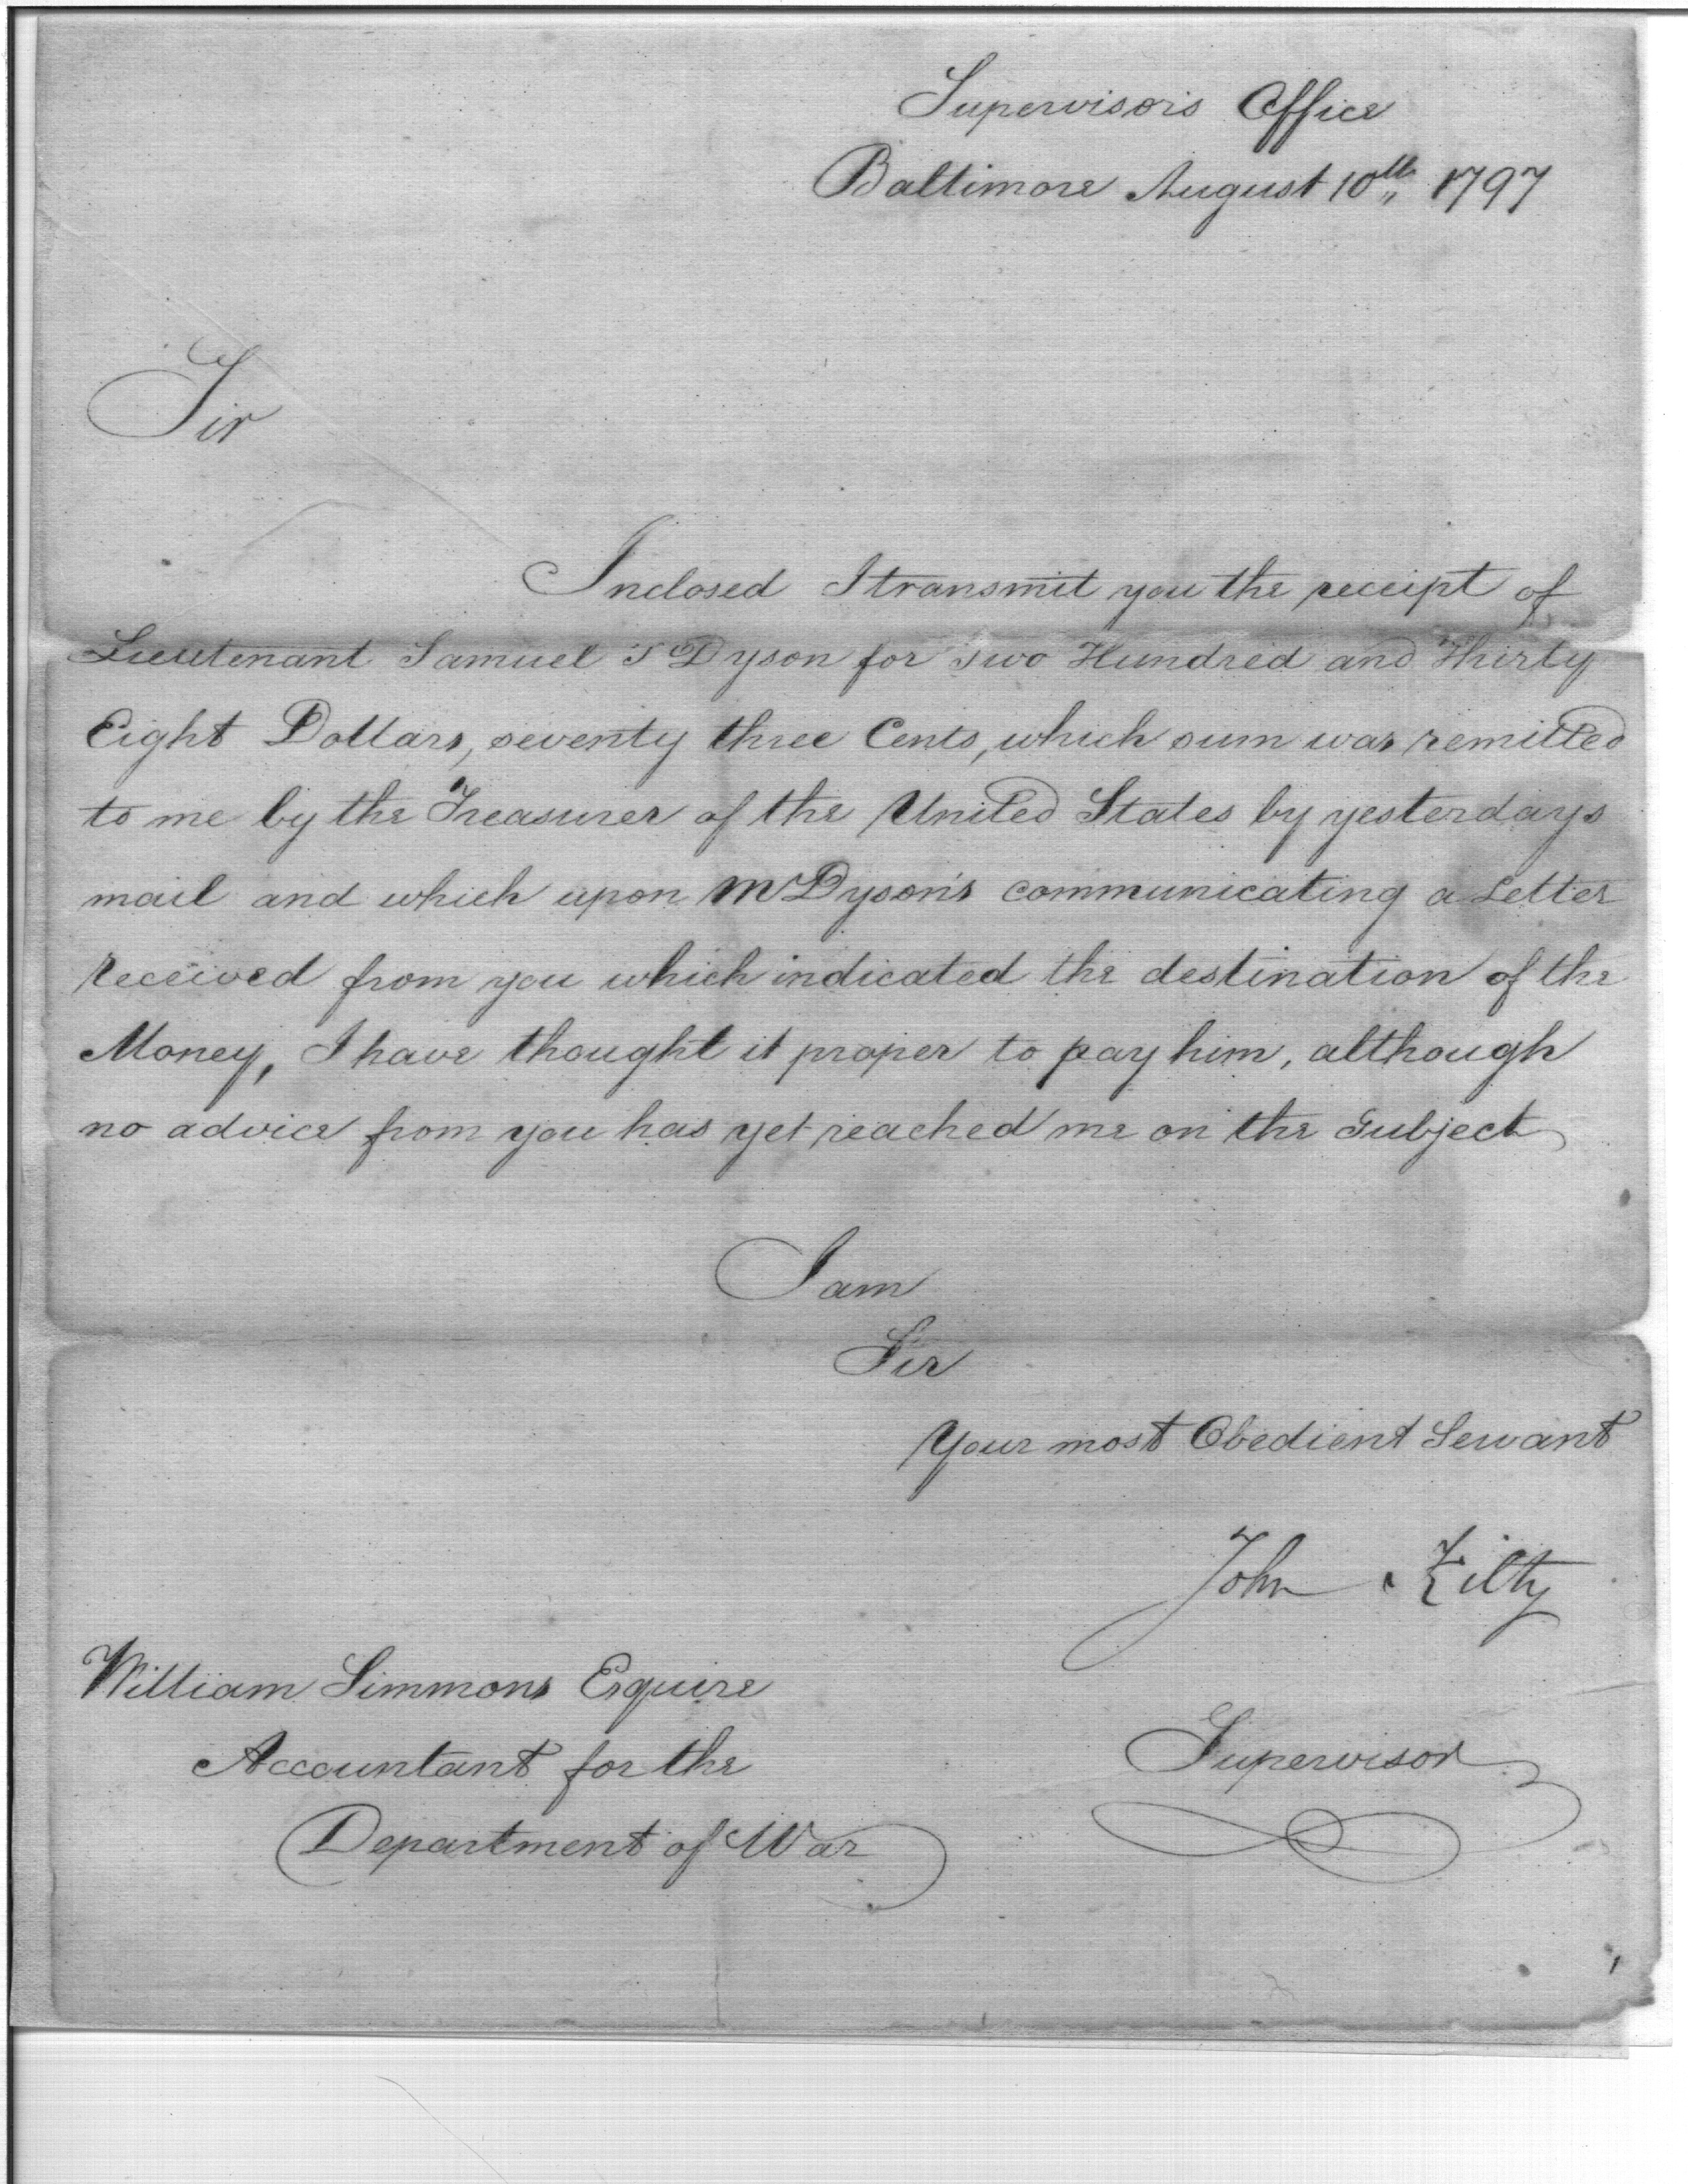 Supervisor's Office
Baltimore August 10th, 1797
Sir
Inclosed I transmit you the receipt of
Lieutenant Samuel T Dyson for Two Hundred and Thirty
Eight Dollars, seventy three Cents, which sum was remitted
to me by the Treasurer of the United States by yesterdays
mail and which upon Mr Dyson's communicating a Letter
received from you which indicated the destination of the
Money, I have thought it proper to pay him, although
no advice from you has yet reached me on the Subject
I am
Sir
Your most Obedient Servant
John Kilty
William Simmons Esquire
Supervisor
Accountant for the
Department of War